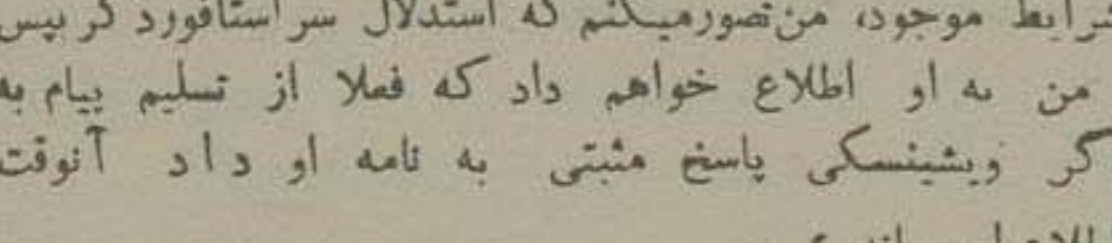 شرایط موجود، من تصور میکنم که استدلال سر استافورد کریپس
من به او اطلاع خواهم داد که فعلا از تسلیم پیام به
گر ویشینسکی پاسخ مثبتی به نامه او داد آنوقت